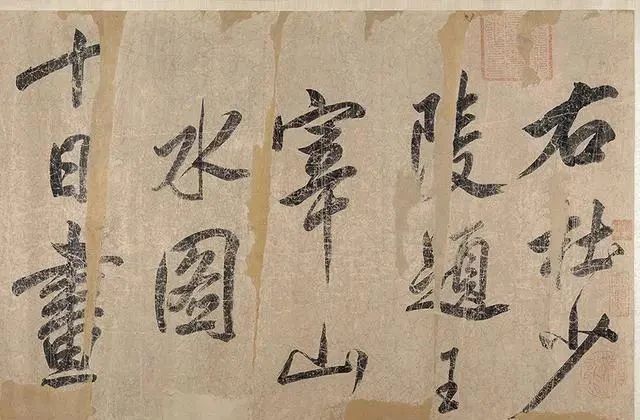 右杜少
陵题王
宰山
水图
十日畫